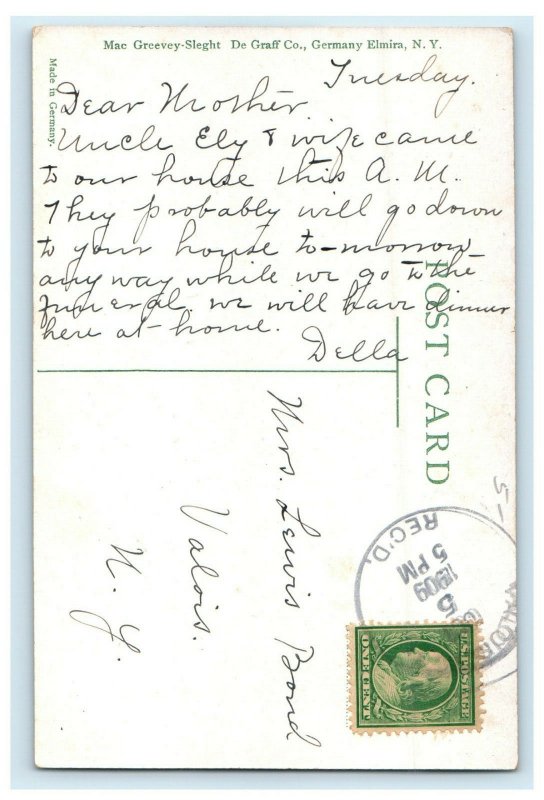 Mac Greevey-Sleght De Graff Co., Germany Elmira, N. Y.
Made in Germany.
Tuesday.
Dear Mother
Uncle Ely & wife came
to our house this A. M.
They probably will go down
to your house to-morrow
any way while we go to the
funeral. we will have dinner
here at home.
Della
POST CARD
Mrs. Lewis Bond
Valois.
N. Y.
REC'D.
5 PM
1909
5
U.S. POSTAGE
ONE CENT